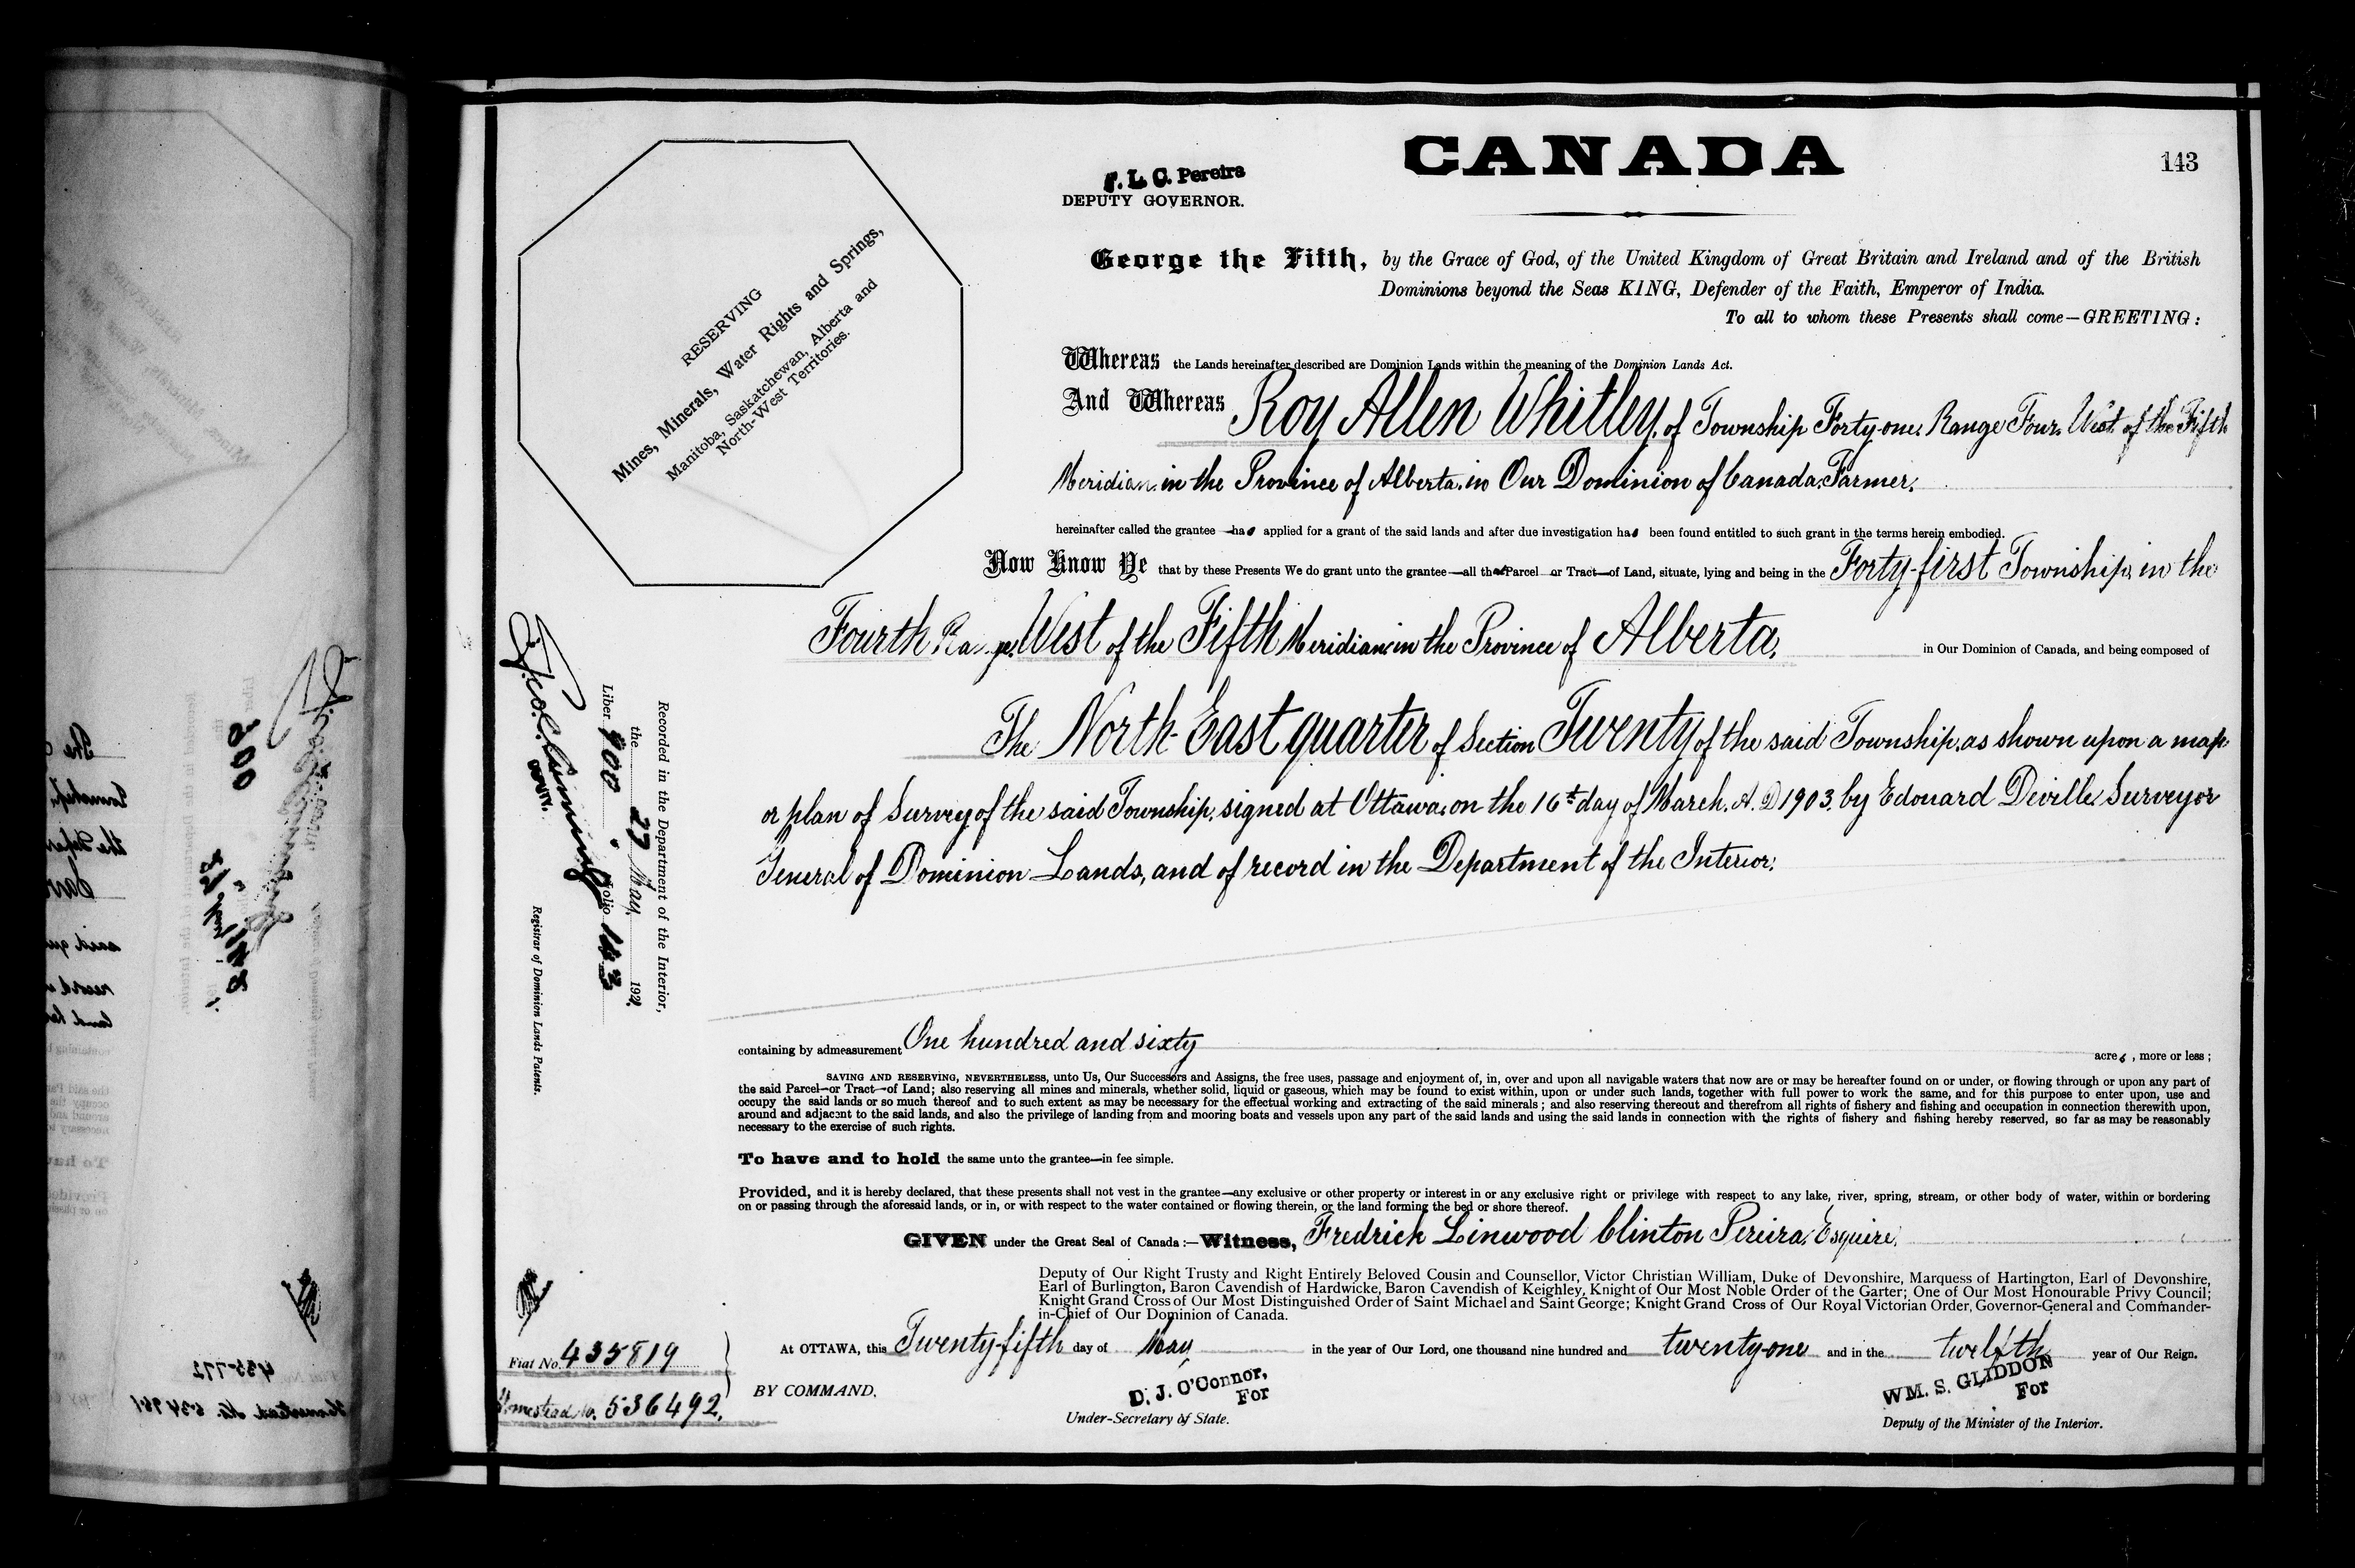 CANADA
143
F. L. C. Pereira
DEPUTY GOVERNOR.
RESERVING
Mines, Minerals, Water Rights and Springs,
Manitoba, Saskatchewan, Alberta and
North-West Territories.
George the Fifth, by the Grace of God, of the United Kingdom of Great Britain and Ireland and of the British
Dominions beyond the Seas KING, Defender of the Faith, Emperor of India.
To all to whom these Presents shall come—GREETING:
Whereas the Lands hereinafter described are Dominion Lands within the meaning of the Dominion Lands Act.
And Whereas Roy Allen Whitley, of Township Forty-one, Range Four, West of the Fifth
Meridian, in the Province of Alberta, in Our Dominion of Canada, Farmer,
hereinafter called the grantee—has applied for a grant of the said lands and after due investigation has been found entitled to such grant in the terms herein embodied.
Now Know Ye that by these Presents We do grant unto the grantee—all that Parcel or Tract—of Land, situate, lying and being in the Forty-first Township, in the
Fourth Range, West of the Fifth Meridian, in the Province of Alberta, in Our Dominion of Canada, and being composed of
The North-East quarter of Section Twenty of the said Township, as shown upon a map
or plan of Survey of the said Township, signed at Ottawa, on the 16th day of March, A. D. 1903, by Edouard Deville, Surveyor
General of Dominion Lands, and of record in the Department of the Interior.
Recorded in the Department of the Interior,
the 27 May, 1921,
Liber 900, Folio 143
DEPUTY.
Registrar of Dominion Lands Patents.
containing by admeasurement One hundred and sixty acres, more or less;
SAVING AND RESERVING, NEVERTHELESS, unto Us, Our Successors and Assigns, the free uses, passage and enjoyment of, in, over and upon all navigable waters that now are or may be hereafter found on or under, or flowing through or upon any part of
the said Parcel—or Tract—of Land; also reserving all mines and minerals, whether solid, liquid or gaseous, which may be found to exist within, upon or under such lands, together with full power to work the same, and for this purpose to enter upon, use and
occupy the said lands or so much thereof and to such extent as may be necessary for the effectual working and extracting of the said minerals; and also reserving thereout and therefrom all rights of fishery and fishing and occupation in connection therewith upon,
around and adjacent to the said lands, and also the privilege of landing from and mooring boats and vessels upon any part of the said lands and using the said lands in connection with the rights of fishery and fishing hereby reserved, so far as may be reasonably
necessary to the exercise of such rights.
To have and to hold the same unto the grantee—in fee simple.
Provided, and it is hereby declared, that these presents shall not vest in the grantee—any exclusive or other property or interest in or any exclusive right or privilege with respect to any lake, river, spring, stream, or other body of water, within or bordering
on or passing through the aforesaid lands, or in, or with respect to the water contained or flowing therein, or the land forming the bed or shore thereof.
GIVEN under the Great Seal of Canada:—Witness, Fredrick Linwood Clinton Pereira, Esquire,
Deputy of Our Right Trusty and Right Entirely Beloved Cousin and Counsellor, Victor Christian William, Duke of Devonshire, Marquess of Hartington, Earl of Devonshire,
Earl of Burlington, Baron Cavendish of Hardwicke, Baron Cavendish of Keighley, Knight of Our Most Noble Order of the Garter; One of Our Most Honourable Privy Council;
Knight Grand Cross of Our Most Distinguished Order of Saint Michael and Saint George; Knight Grand Cross of Our Royal Victorian Order, Governor-General and Commander-
in-Chief of Our Dominion of Canada.
At OTTAWA, this Twenty-fifth day of May in the year of Our Lord, one thousand nine hundred and twenty-one and in the twelfth year of Our Reign.
Fiat No. 435819
Homestead No. 536492.
BY COMMAND,
D. J. O'Connor,
For
Under-Secretary of State.
WM. S. GLIDDON
For
Deputy of the Minister of the Interior.